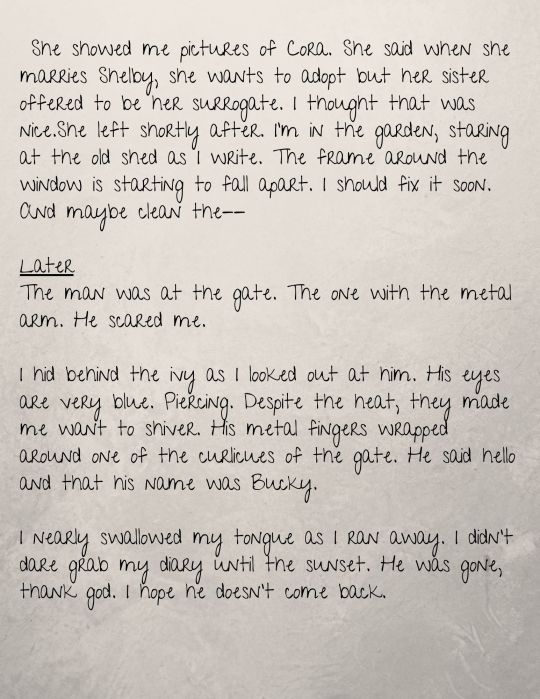 She showed me pictures of Cora. She said when she
marries Shelby, she wants to adopt but her sister
offered to be her surrogate. I thought that was
nice.She left shortly after. I'm in the garden, staring
at the old shed as I write. The frame around the
window is starting to fall apart. I should fix it soon.
And maybe clean the--
Later
The man was at the gate. The one with the metal
arm. He scared me.
I hid behind the ivy as I looked out at him. His eyes
are very blue. Piercing. Despite the heat, they made
me want to shiver. His metal fingers wrapped
around one of the curlicues of the gate. He said hello
and that his name was Bucky.
I nearly swallowed my tongue as I ran away. I didn't
dare grab my diary until the sunset. He was gone,
thank god. I hope he doesn't come back.